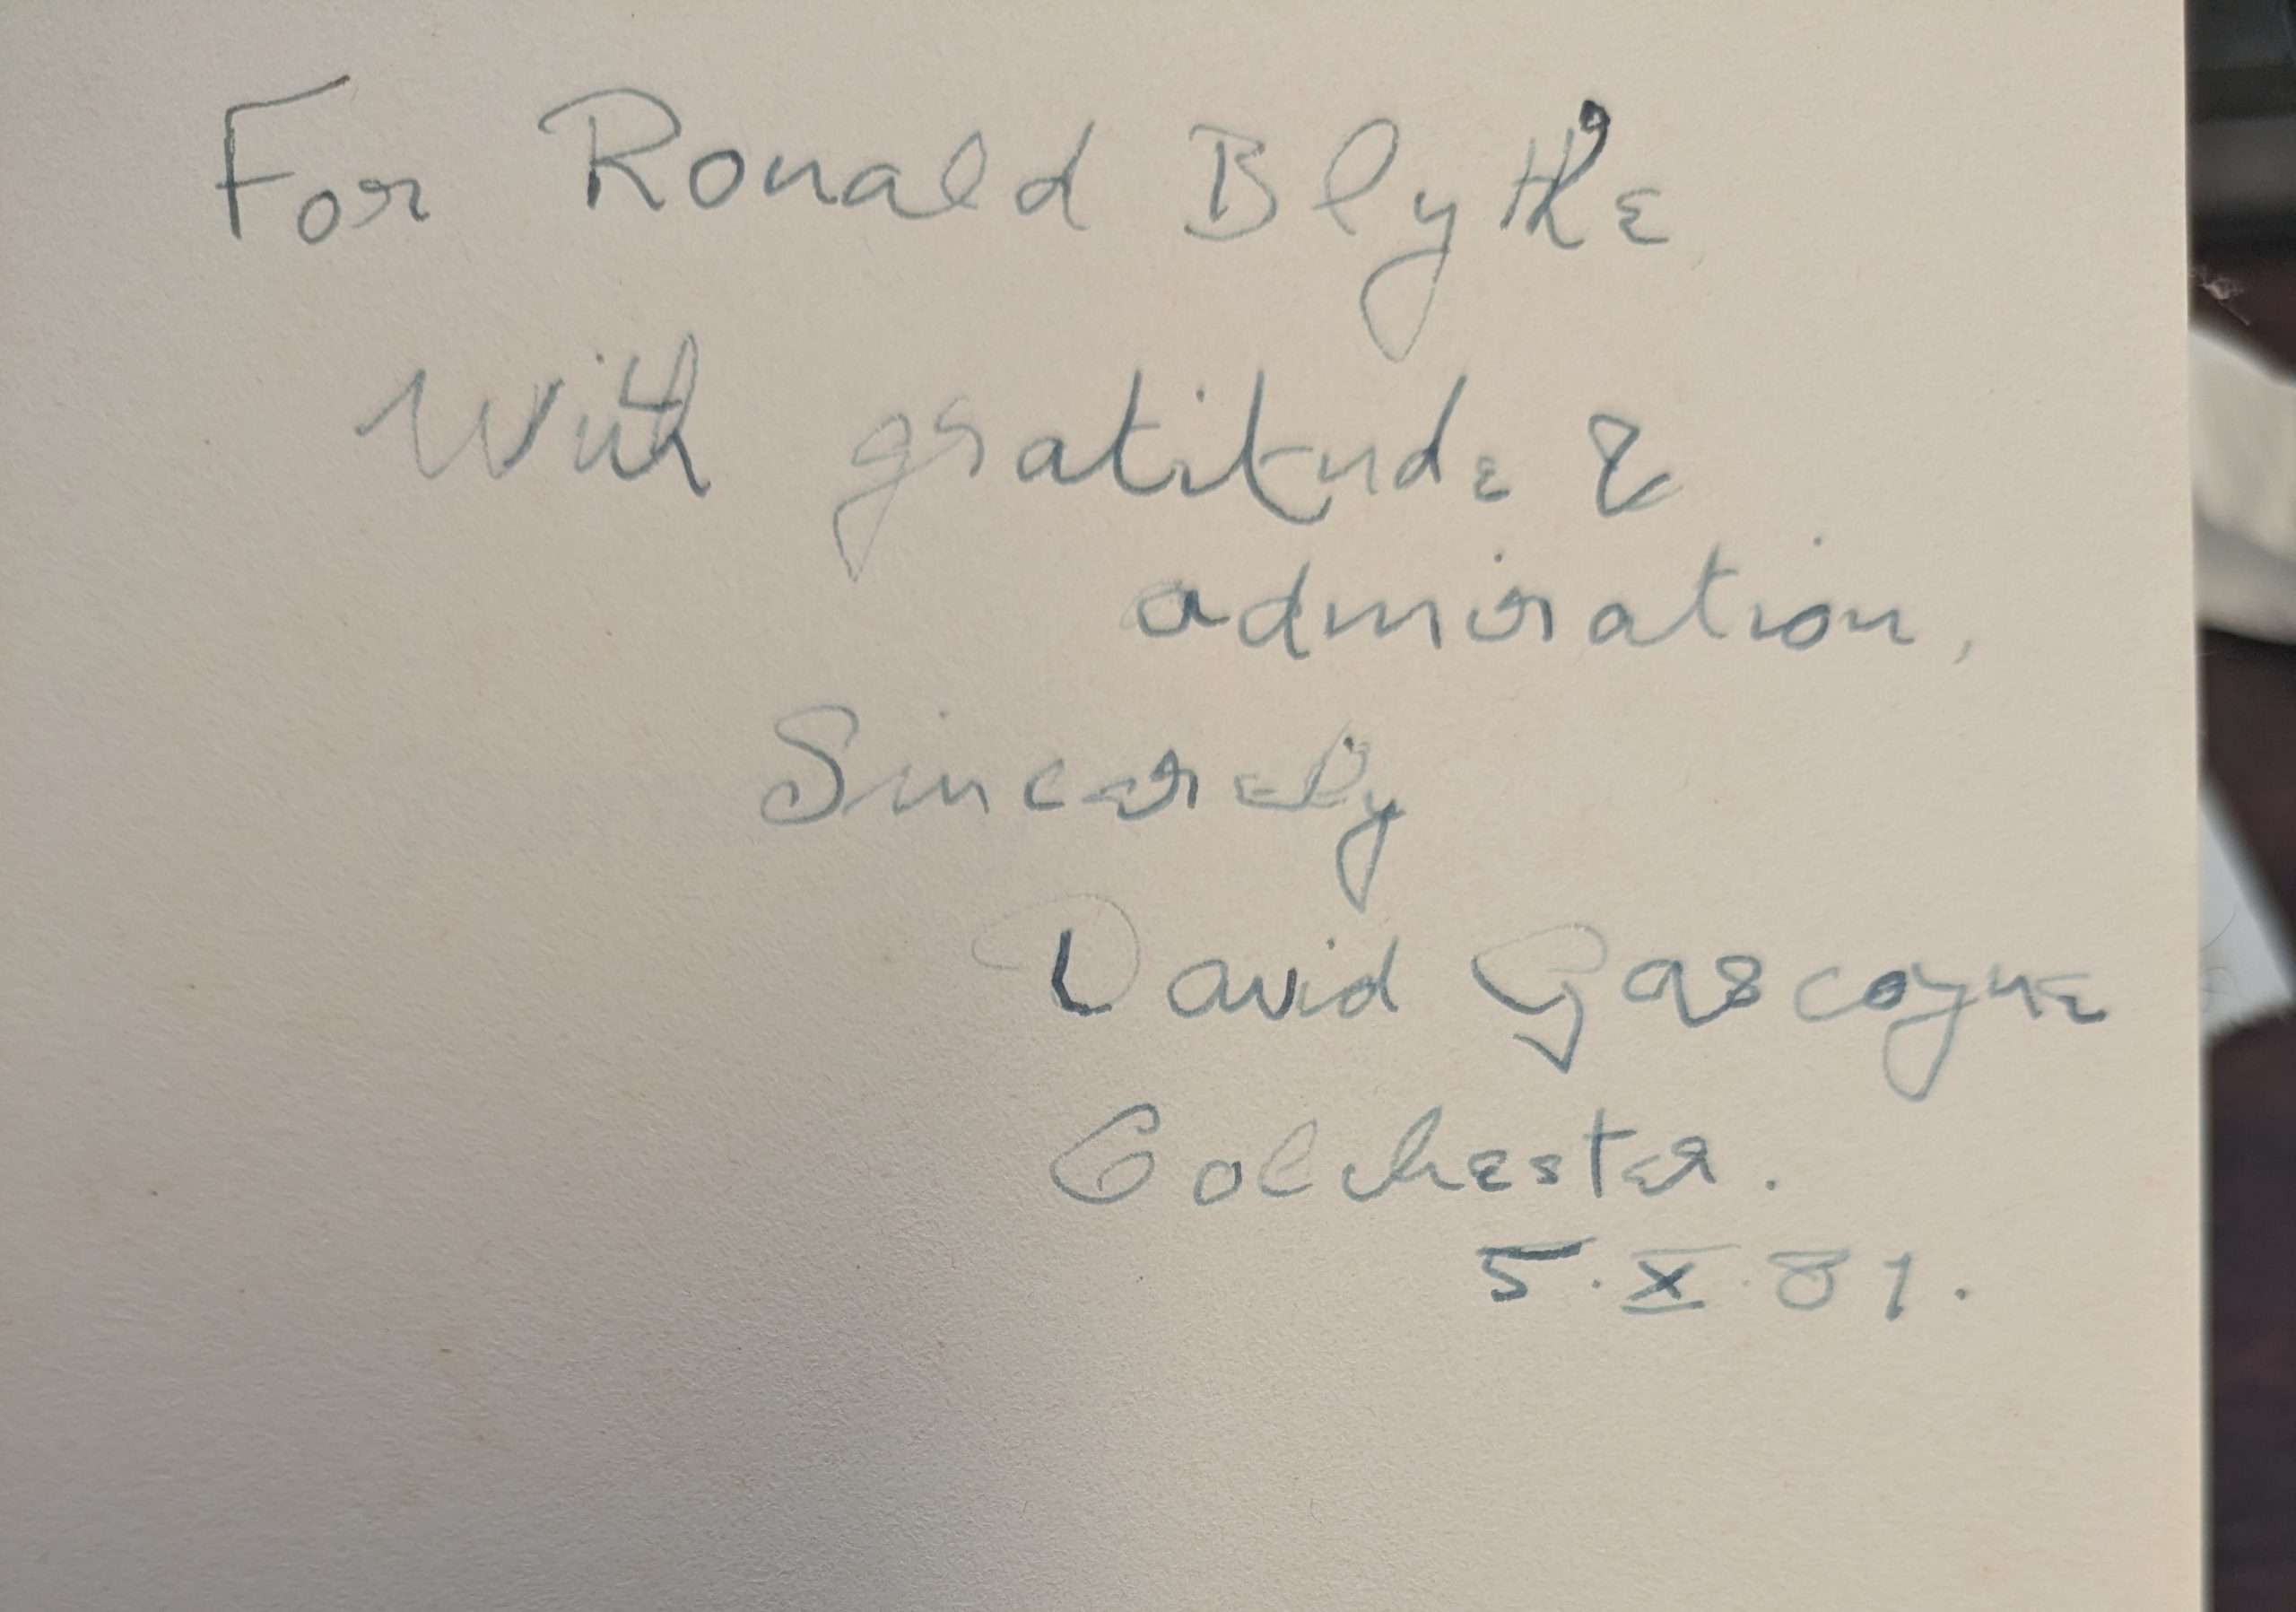 For Ronald Blythe
With gratitude &
admiration,
Sincerely
David Gascoyne
Colchester.
5.X.81.